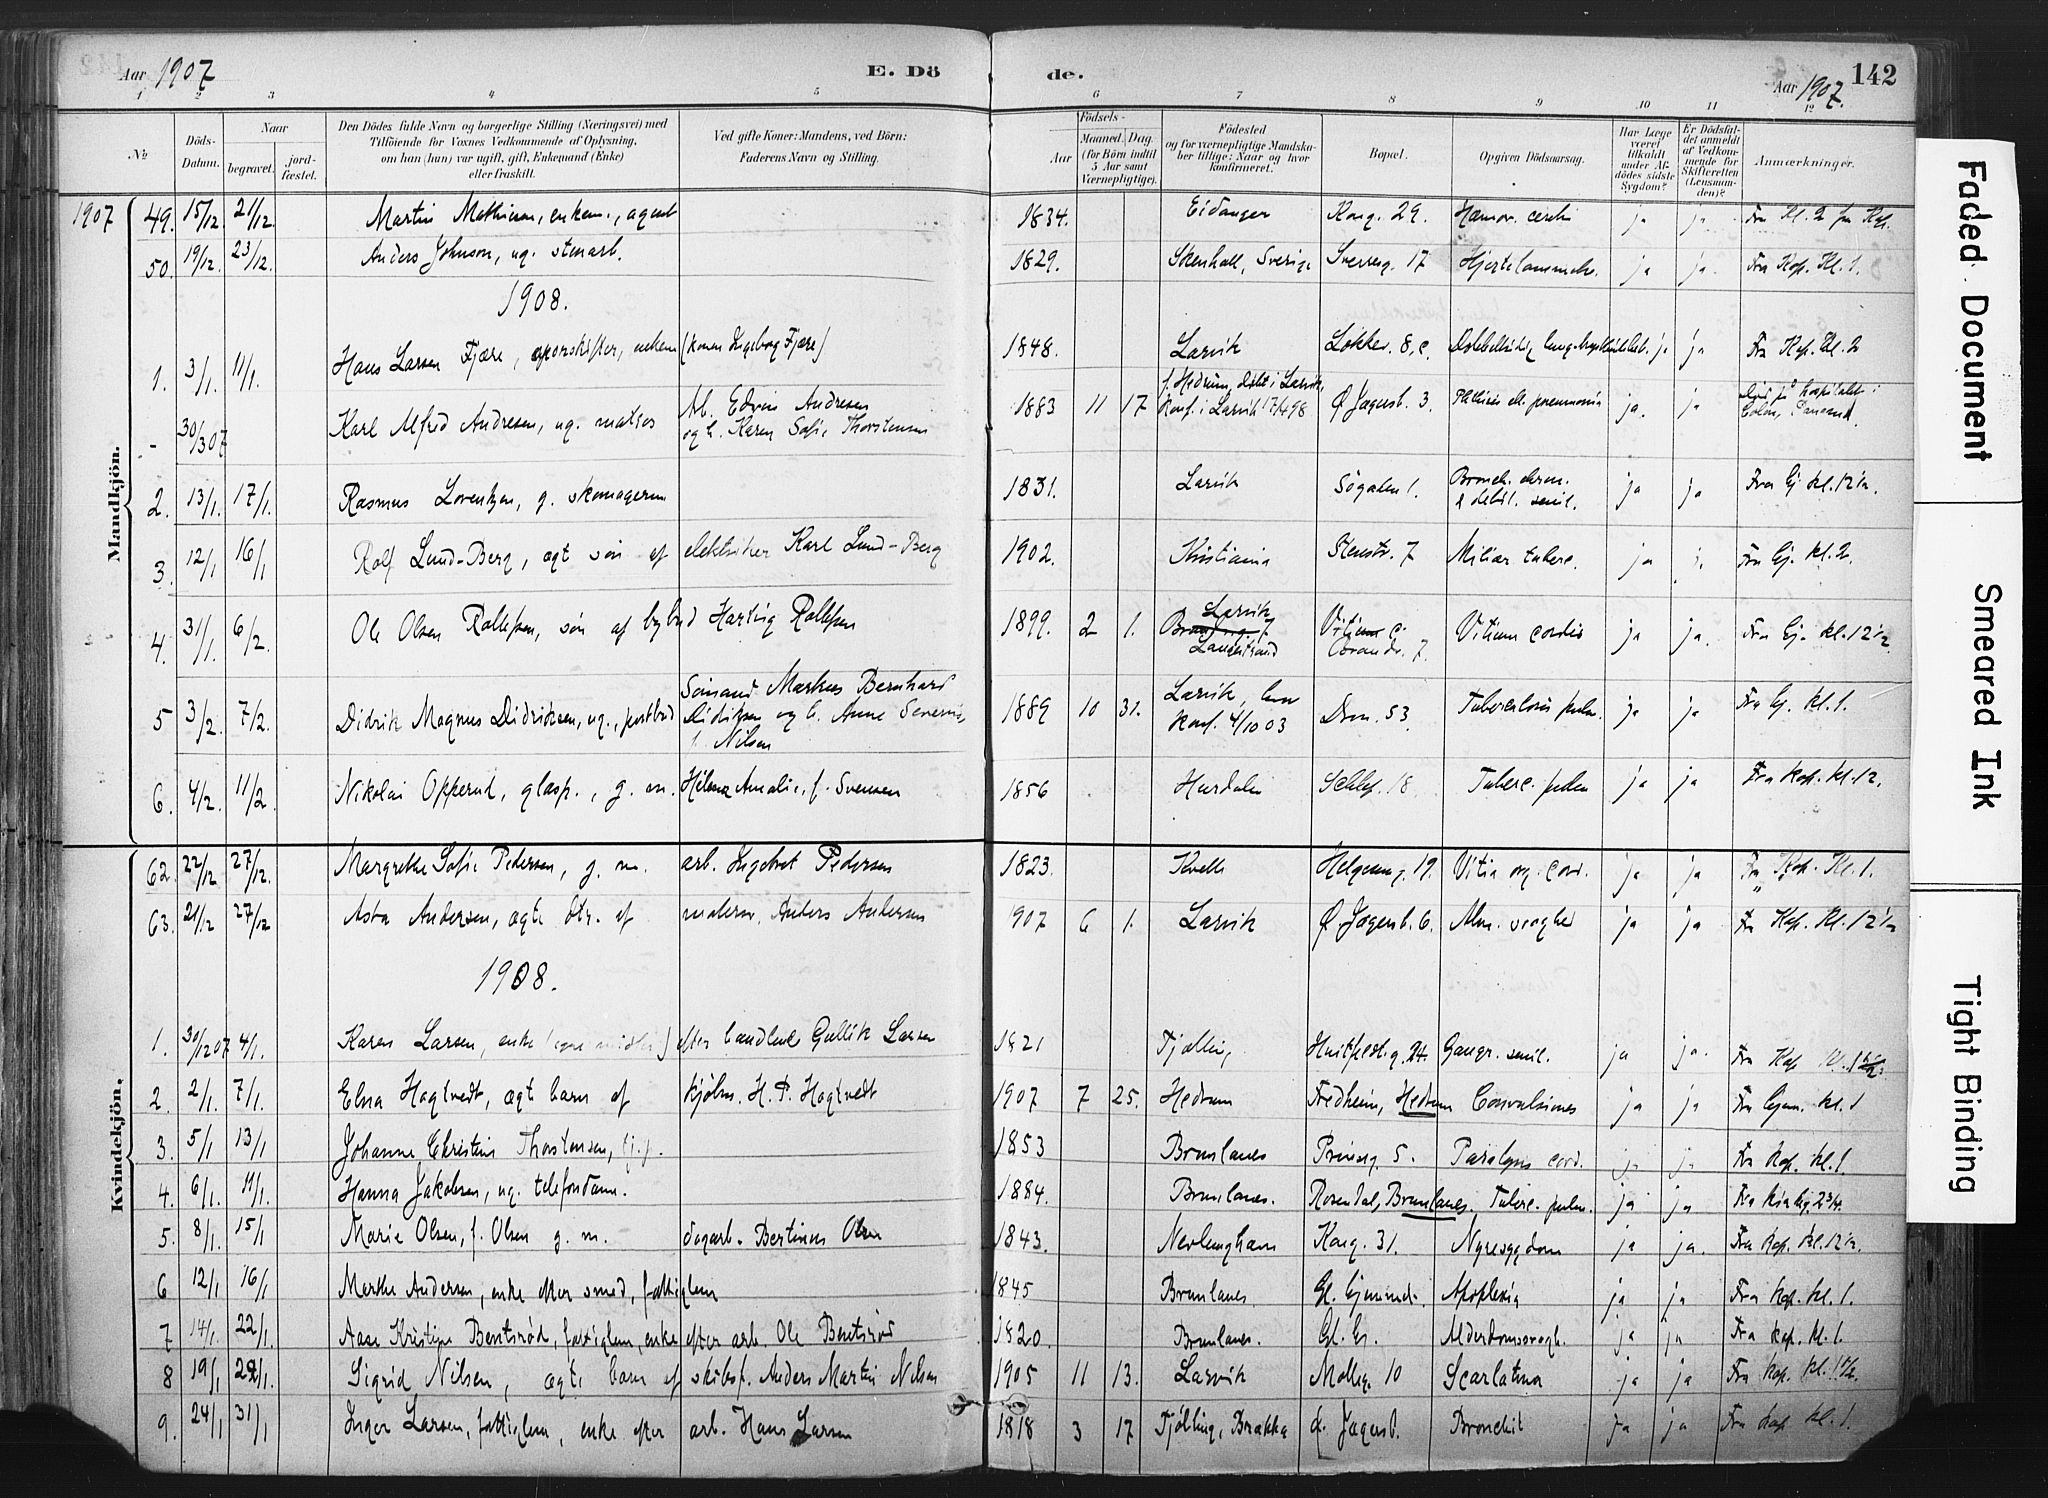 Aar 1907
E. Dö
de.
Aar 1907.
142
1 2 3 4 5 6 7 8 9 10 11 12
No
Döds-Datum.
Naar
begravet.
jord-fæstet.
Den Dödes fulde Navn og borgerlige Stilling (Næringsvei) med
Tilföiende for Voxnes Vedkommende af Oplysning,
om han (hun) var ugift, gift, Enkemand (Enke)
eller fraskilt.
Ved gifte Koner: Mandens, ved Börn:
Faderens Navn og Stilling.
Födsels-
Aar
Maaned. Dag.
(for Börn indtil
5 Aar samt
Værnepligtige).
Födested
og for værnepligtige Mandska-
ber tillige: Naar og hvor
konfirmeret.
Bopæl.
Opgiven Dödsaarsag.
Har Læge
været
tilkaldt
under Af-
dödes sidste
Sygdom?
Er Dödsfal-
det anmeldt
af Vedkom-
mende for
Skifteretten
(Lensman-
den)?
Anmærkninger.
Mandkjön.
1907 49. 15/12. 21/12. Martin Mathisen, enkem., agent 1834. Eidanger Kong. 29. Hæmor. cerebri ja ja Fra Kl. 2 fra Kap.
50. 19/12. 23/12. Anders Johnson, ug. stenarb. 1829. Skenhall, Sverige Sverreg. 17 Hjertelammelse. ja ja. Fra Kap. Kl. 1.
1908.
1. 3/1. 11/1. Hans Larsen Fjære, enkem (konen Ingeborg Fjære) 1848. Larvik Løkker. 8, c. ja ja Fra Kap. Kl. 2
- 30/3 07 Karl Alfred Andresen, ug. matros Arb. Edvin Andresen og h. Karen Sofie Thorstensen 1883 11 17 f. Hedrum, døbt i Larvik, Konf. i Larvik 17/4 98 Ø. Jagersb. 3. ja. ja Død på hospitalet i Colon, Panama.
2. 13/1. 17/1. Rasmus Lorentzen, g. skomagerm 1831. Larvik Søgaten 1. Bronch. chron. & debil. senil. ja ja Fra Gj kl. 12 1/2.
3. 12/1 16/1 Rolf Lund-Berg, ægt søn af elektriker Karl Lund-Berg 1902. Kristiania Stenstr. 7 Miliær tuberc. ja Fra Gj. kl. 2.
4. 31/1. 6/2. Ole Olsen Rollefsen, søn af bybud Hartvig Rollefsen 1899. 2 1. Larvik Langestrand 7. Vitium cordis ja ja. Fra Gj. kl. 12 1/2.
5 3/2. 7/2. Didrik Magnus Didriksen, ug., postbud Sømand Markus Bernhard Didriksen og h. Anne f. Nilsen 1889 10 31. Larvik, Konf. 4/10 03 Dron. 53. Tuberculosis pulm. ja ja Fra Gj. kl. 1.
6. 4/2. 11/2. Nikolai Opperud, glasp., g. m. Helene Amalie, f. Svensen 1856 Hurdalen 18 Tuberc. pulm ja ja Fra Kap. kl. 12.
Kvindekjön.
62. 22/12 27/12. Margrethe Sofie Pedersen, g. m. arb. Ingebret Pedersen 1823. Kvelle Helgeung. 19. Vitia org. cord. ja ja Fra Kap. Kl. 1.
63. 21/12 27/12 Asta Andersen, ægte dtr. af malersv. Anders Andersen 1907 6 1. Larvik Ø. Jagersb. 6. Alm. svaghed ja ja Fra Kap. Kl. 12 1/2
1908.
1. 30/12 07 4/1. Karen Larsen, enke efter landhandl. Gullik Larsen 1821 Tjølling Huitfeldtsg. 24. Gangr. senil. ja ja. Fra Kap
2. 2/1. 7/1. Elna Hagtvedt, ægte barn af kjøbm. H. P. Hagtvedt 1907 7 25. Hedrum Fredheim, Hedrum Convulsiones ja ja Fra Gjem. kl. 1
3. 5/1 13/1 Johanne Christine Thorstensen, tj. 1853 Brunlanes Prinseg. 5. Paralysis cord. ja ja Fra Kap. kl. 1.
4. 6/1. 11/1. Hanna Jakobsen, ug. telefondame. 1884. Brunlanes. Rosendal, Brunlanes. Tuberc. pulm. ja ja Fra kirken kl. 2 3/4.
5. 8/1. 15/1 Marie Olsen, f. Olsen g. m. dagarb. Bertinus Olsen 1843. Nevlunghavn Kong. 31. Nyresygdom ja ja. Fra Kap. kl. 12 1/2.
6 12/1 16/1 Marthe Andersen, enke efter smed, fattiglem 1845 Brunlanes. Gl. Gjeminde. Apoplexia ja ja Fra Kap. kl. 1.
7 14/1. 22/1. Aase Kristine Bentsrød, fattiglem, enke efter arb. Ole Bentsrød 1820. Brunlanes. Gl. Gj. Alderdomssvagh. ja ja Fra Kap. kl. 1.
8 19/1 29/1. Sigrid Nilsen, ægte barn af skibsf. Anders Martin Nilsen 1905 11 13. Larvik Mølleg. 10 Scarlatina ja ja Fra Kap. kl. 1 1/2.
9. 24/1 31/1 Inger Larsen, fattiglem, enke efter arb. Hans Larsen 1818 3 17 Tjølling, Brækka Ø. Jagersb. Bronchit ja ja Fra Kap kl. 1.
Faded Document
Smeared Ink
Tight Binding